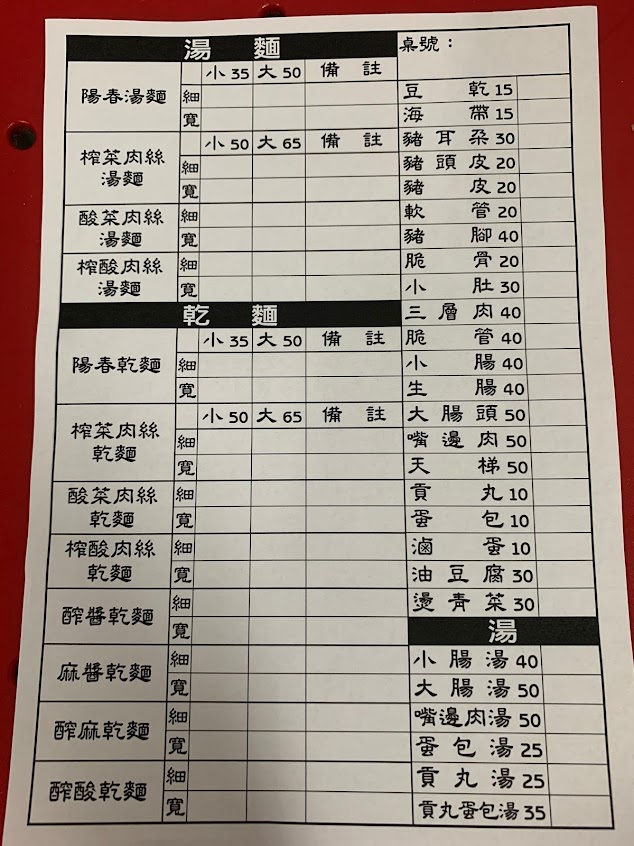 湯麵
小35 大50 備註
陽春湯麵
細
寬
小50 大65 備註
榨菜肉絲
湯麵
細
寬
酸菜肉絲
湯麵
細
寬
榨酸肉絲
湯麵
細
寬
乾麵
小35 大50 備註
陽春乾麵
細
寬
小50 大65 備註
榨菜肉絲
乾麵
細
寬
酸菜肉絲
乾麵
細
寬
榨酸肉絲
乾麵
細
寬
醡醬乾麵
細
寬
麻醬乾麵
細
寬
醡麻乾麵
細
寬
醡酸乾麵
細
寬
桌號：
豆乾15
海帶15
豬耳朶30
豬頭皮20
豬皮20
軟管20
豬腳40
脆骨20
小肚30
三層肉40
脆管40
小腸40
生腸40
大腸頭50
嘴邊肉50
天梯50
貢丸10
蛋包10
滷蛋10
油豆腐30
燙青菜30
湯
小腸湯40
大腸湯50
嘴邊肉湯50
蛋包湯25
貢丸湯25
貢丸蛋包湯35